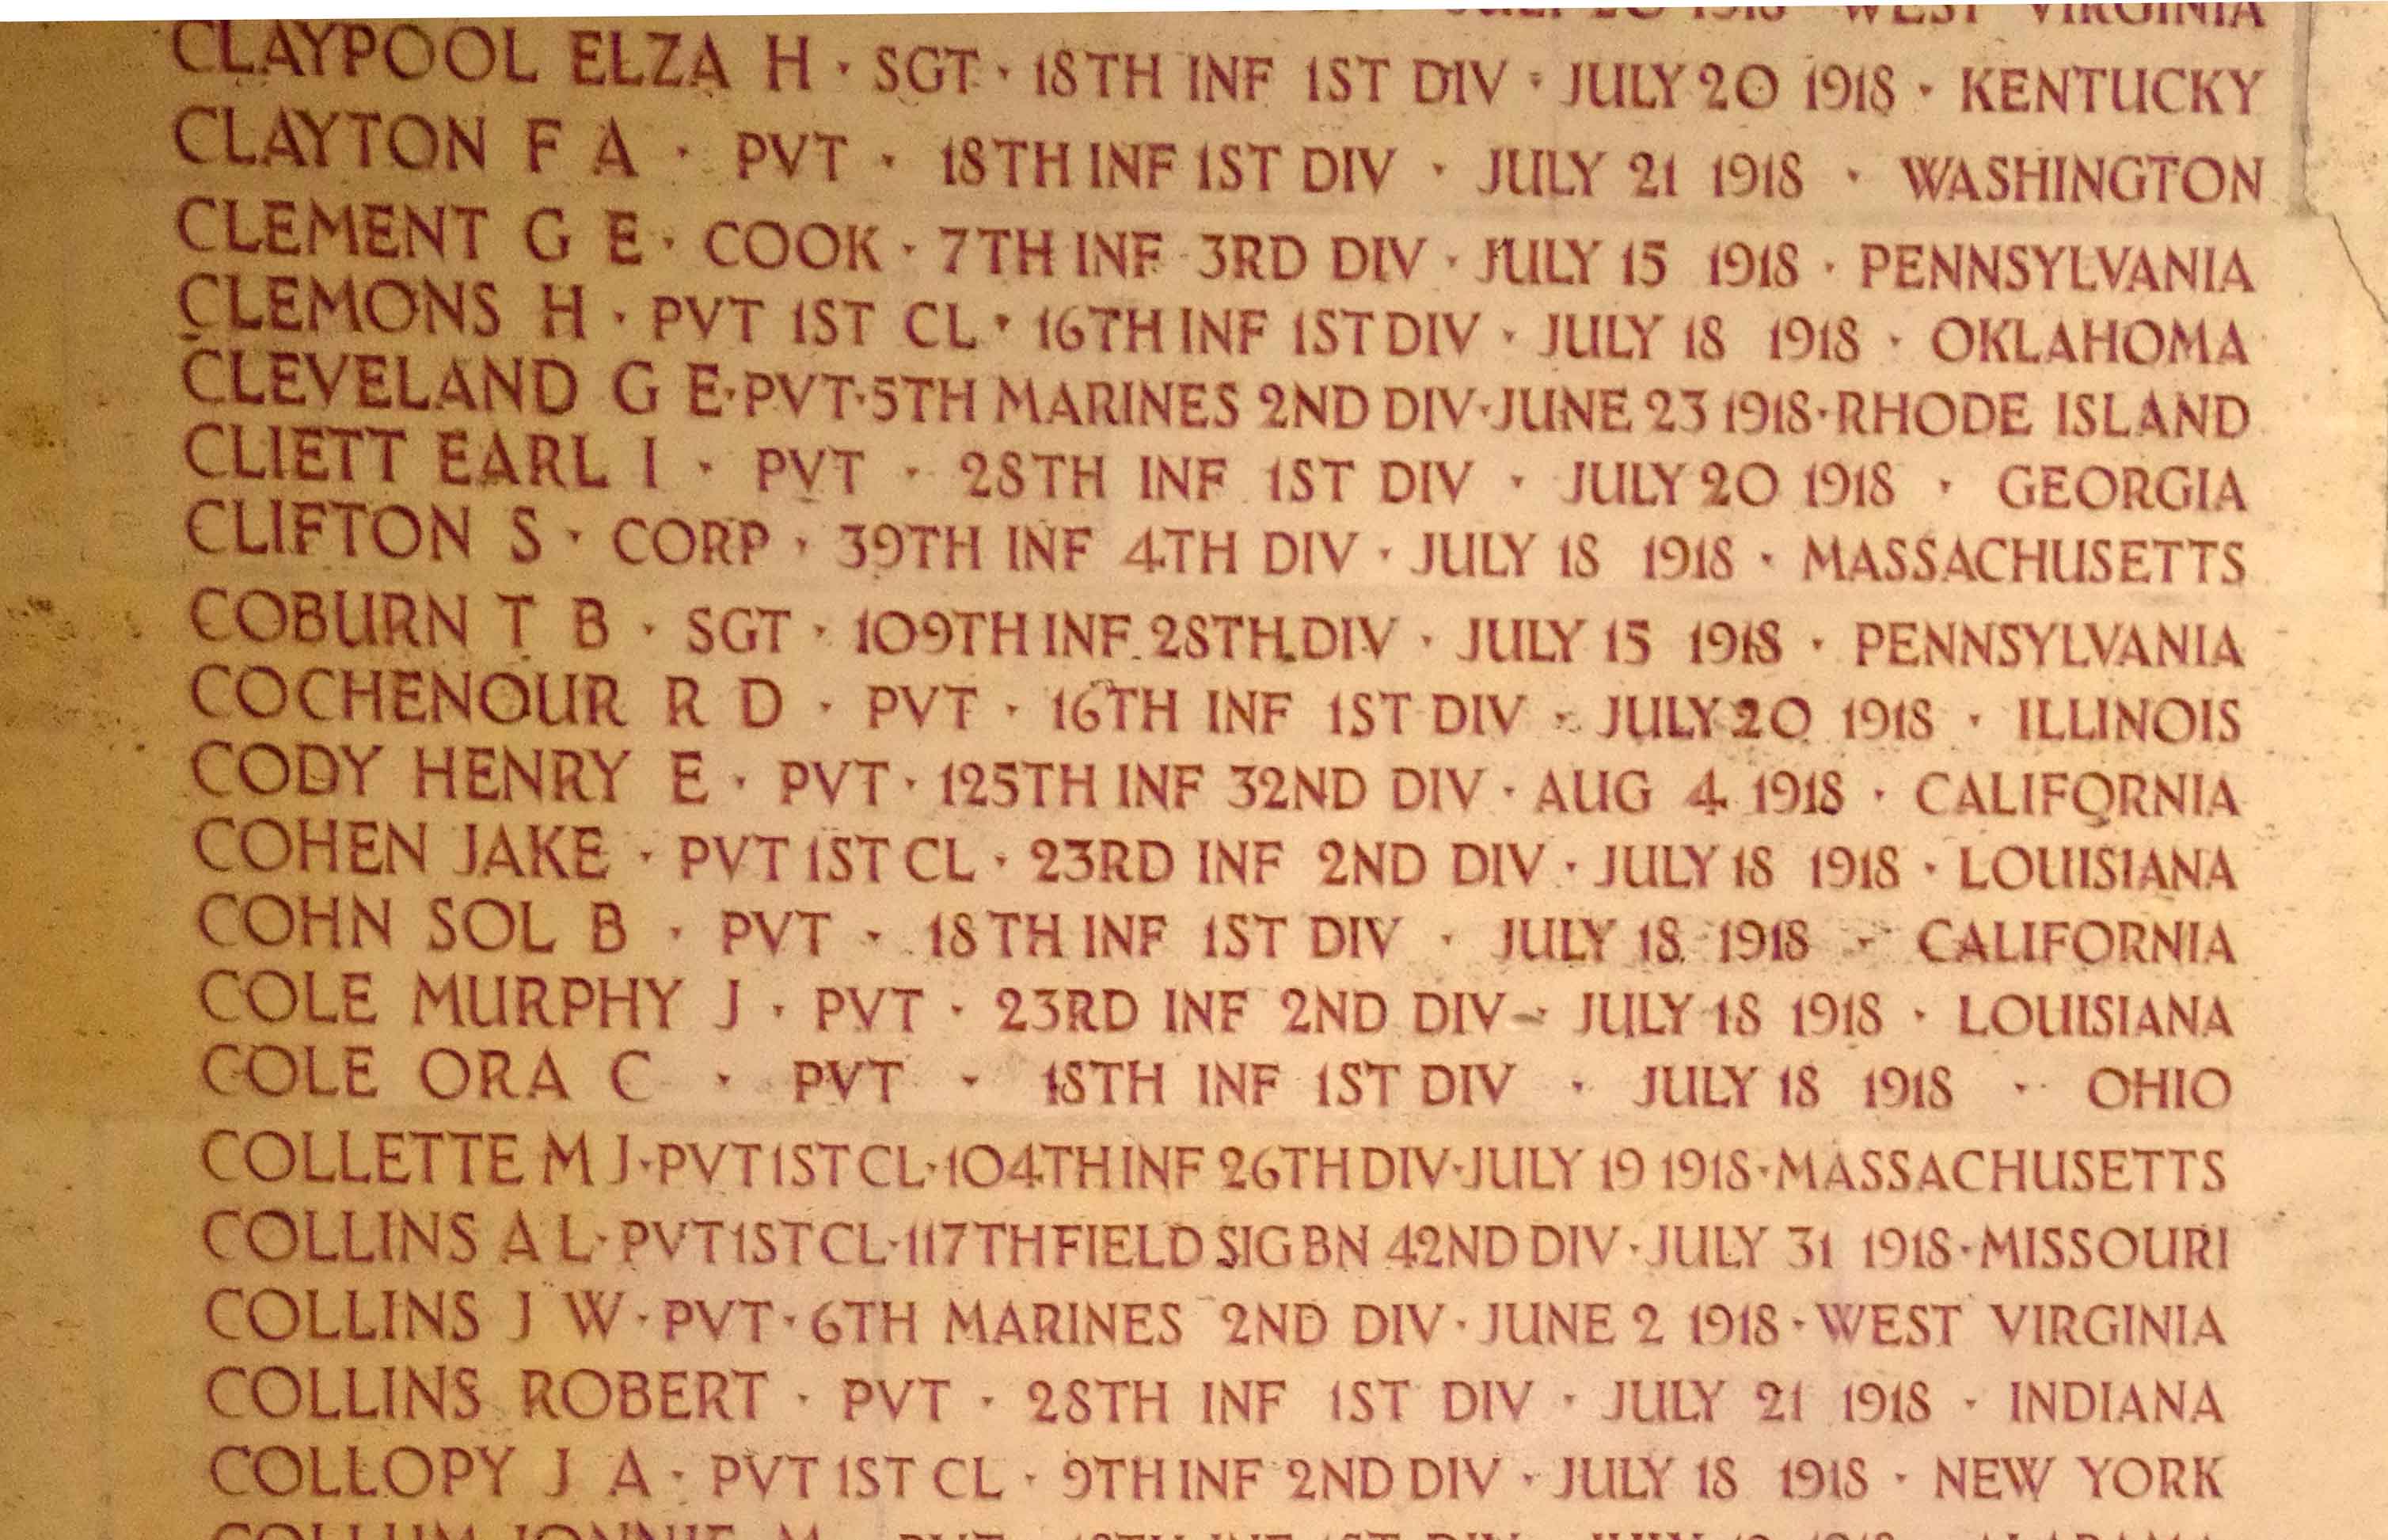 JULY 20 1918 WEST VIRGINIA
CLAYPOOL ELZA H · SGT · 18TH INF 1ST DIV · JULY 20 1918 · KENTUCKY
CLAYTON F A · PVT · 18TH INF 1ST DIV · JULY 21 1918 · WASHINGTON
CLEMENT G E · COOK · 7TH INF 3RD DIV · JULY 15 1918 · PENNSYLVANIA
CLEMONS H · PVT 1ST CL · 16TH INF 1ST DIV · JULY 18 1918 · OKLAHOMA
CLEVELAND G E · PVT · 5TH MARINES 2ND DIV · JUNE 23 1918 · RHODE ISLAND
CLIETT EARL I · PVT · 28TH INF 1ST DIV · JULY 20 1918 · GEORGIA
CLIFTON S · CORP · 39TH INF 4TH DIV · JULY 18 1918 · MASSACHUSETTS
COBURN T B · SGT · 109TH INF 28TH DIV · JULY 15 1918 · PENNSYLVANIA
COCHENOUR R D · PVT · 16TH INF 1ST DIV · JULY 20 1918 · ILLINOIS
CODY HENRY E · PVT · 125TH INF 32ND DIV · AUG 4 1918 · CALIFORNIA
COHEN JAKE · PVT 1ST CL · 23RD INF 2ND DIV · JULY 18 1918 · LOUISIANA
COHN SOL B · PVT · 18TH INF 1ST DIV · JULY 18 1918 · CALIFORNIA
COLE MURPHY J · PVT · 23RD INF 2ND DIV · JULY 18 1918 · LOUISIANA
COLE ORA C · PVT · 18TH INF 1ST DIV · JULY 18 1918 · OHIO
COLLETTE M J · PVT 1ST CL · 104TH INF 26TH DIV · JULY 19 1918 · MASSACHUSETTS
COLLINS A L · PVT 1ST CL · 117TH FIELD SIG BN 42ND DIV · JULY 31 1918 · MISSOURI
COLLINS J W · PVT · 6TH MARINES 2ND DIV · JUNE 2 1918 · WEST VIRGINIA
COLLINS ROBERT · PVT · 28TH INF 1ST DIV · JULY 21 1918 · INDIANA
COLLOPY J A · PVT 1ST CL · 9TH INF 2ND DIV · JULY 18 1918 · NEW YORK
COLLUM JONNIE M